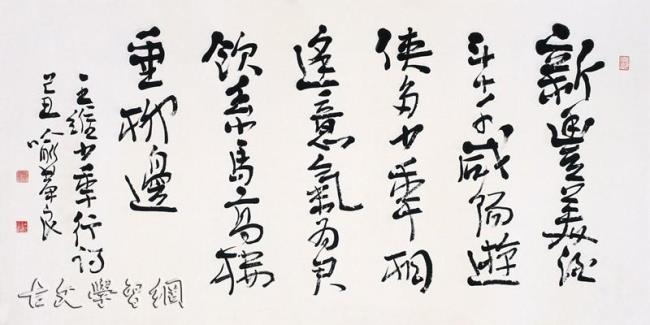 新豐美酒
斗十千咸陽遊
俠多少年相
逢意氣為君
飲系馬高樓
垂柳邊
王維少年行詩
己丑喻良
古文學習網